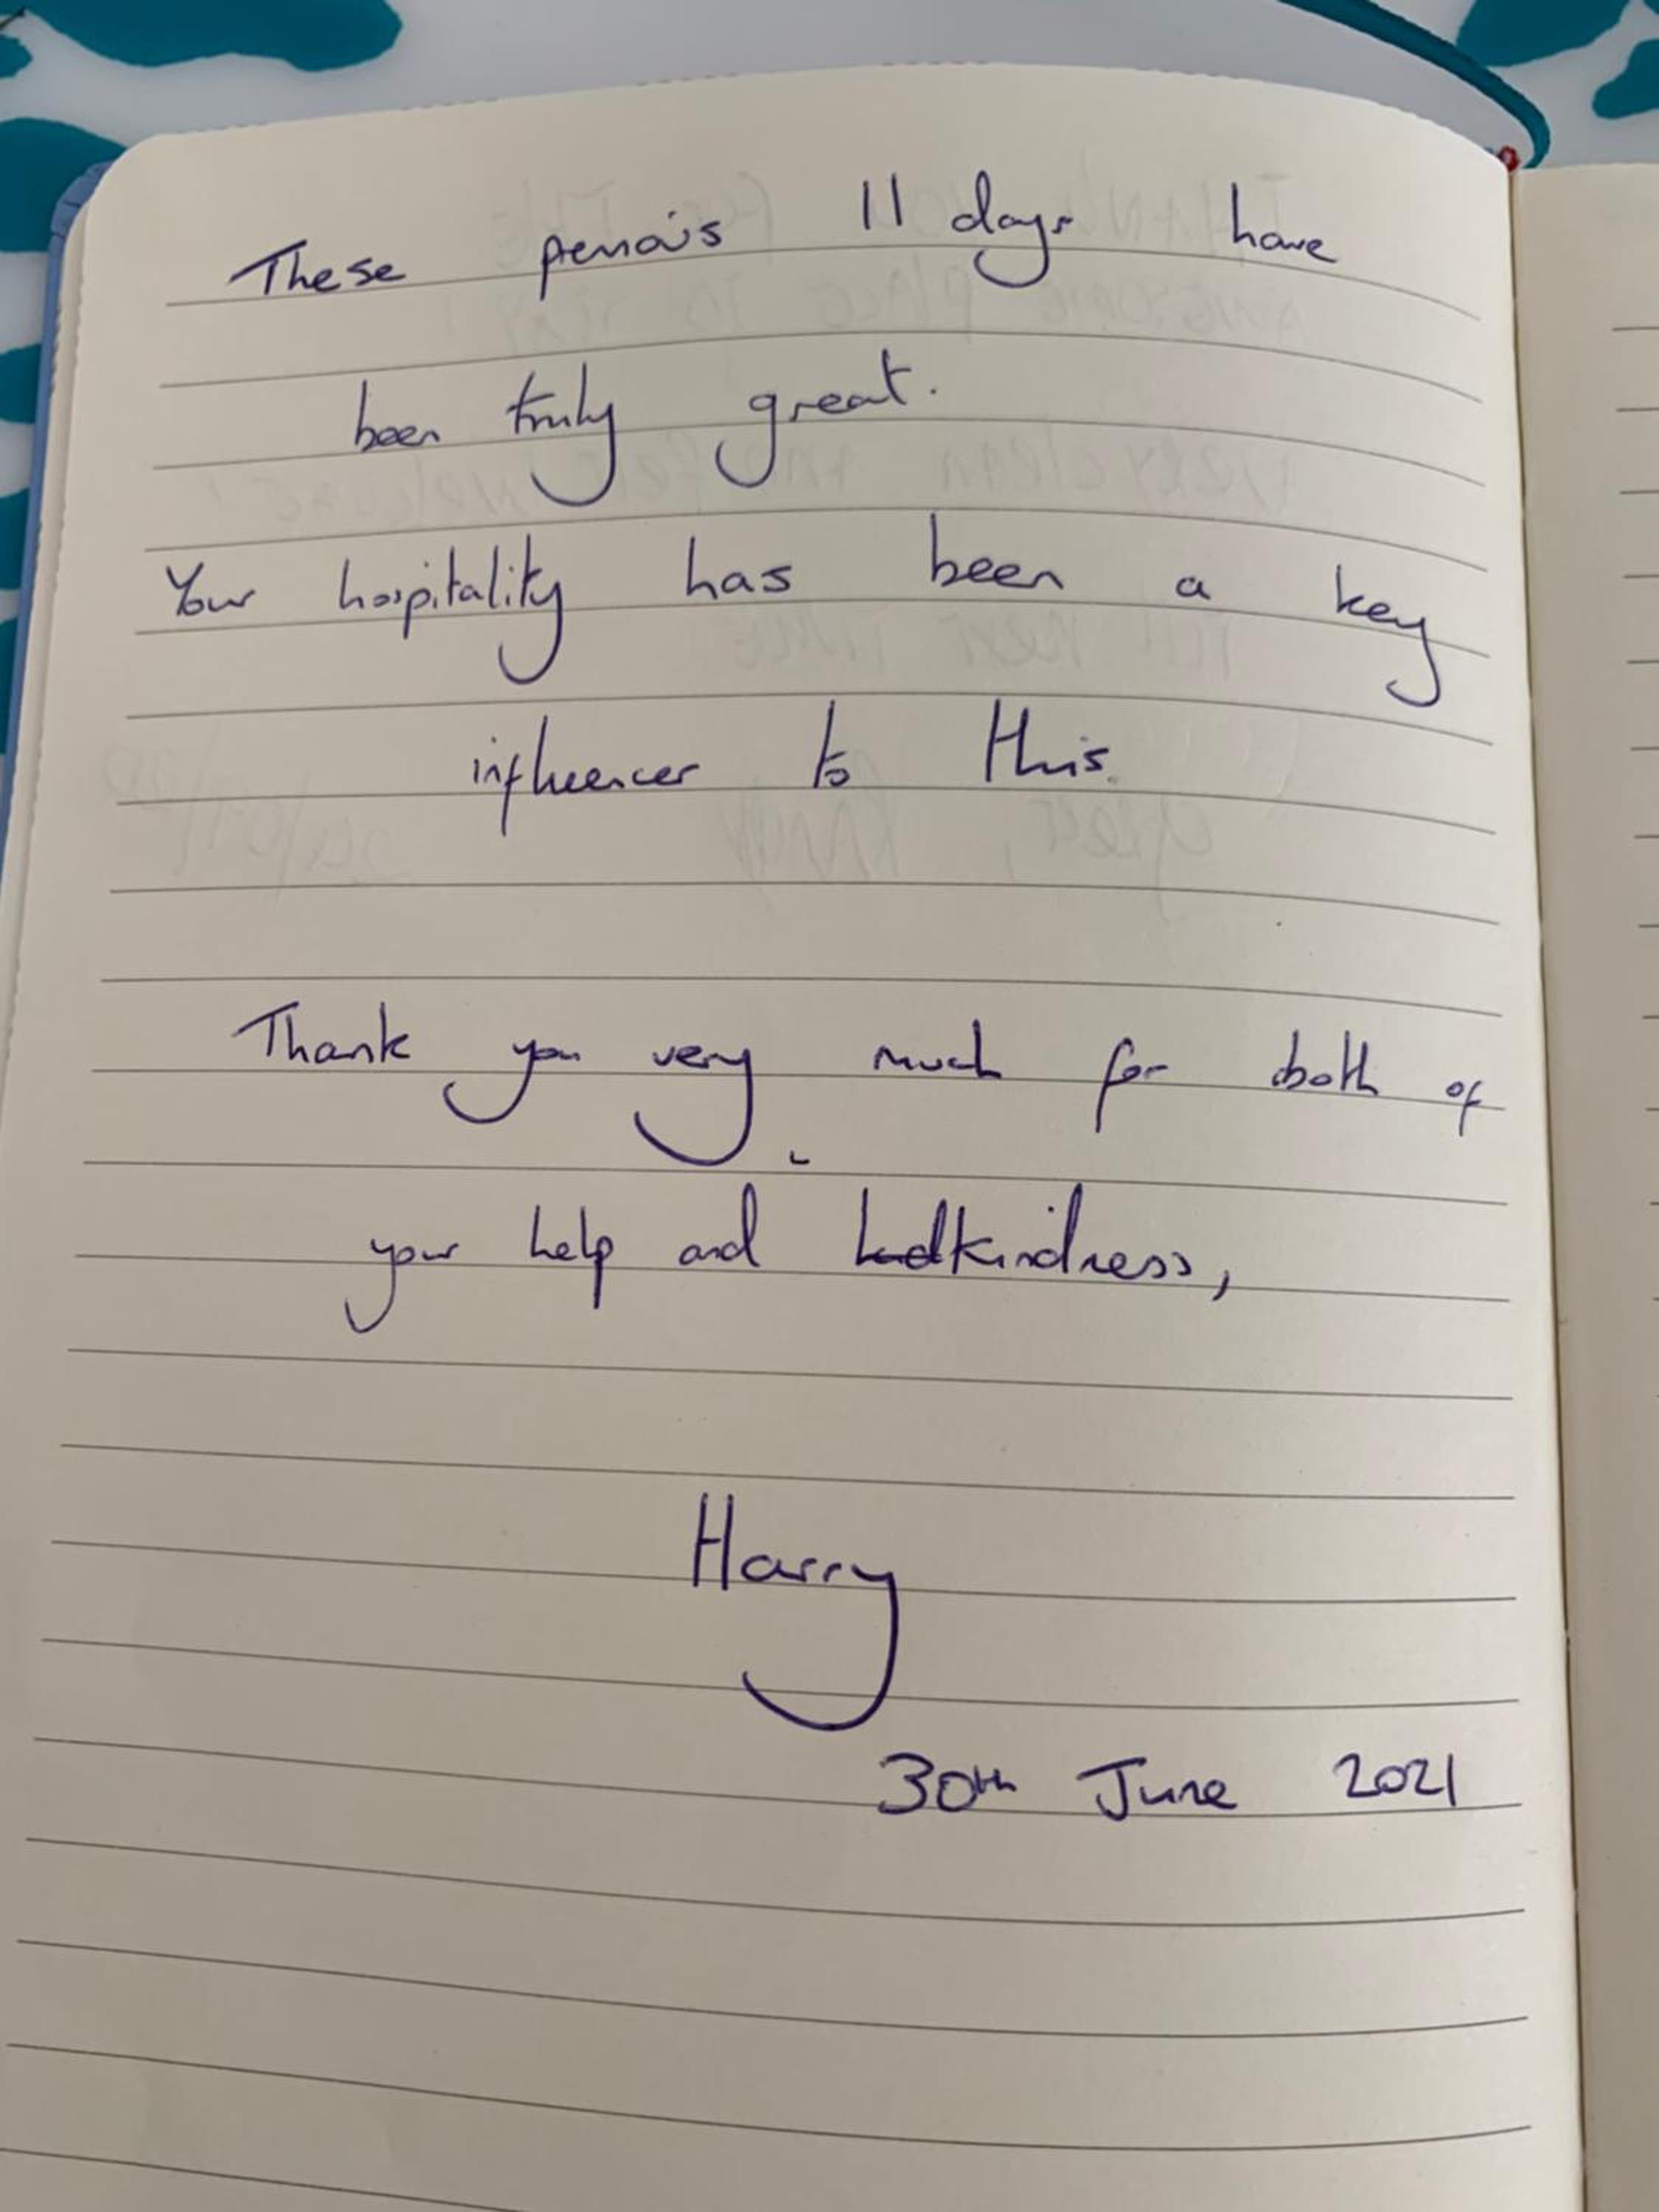 These 11 days have
been truly great.
Your hospitality has been a key
influencer to this.
Thank you very much for both of
your help and kindness,
Harry
30th June 2021